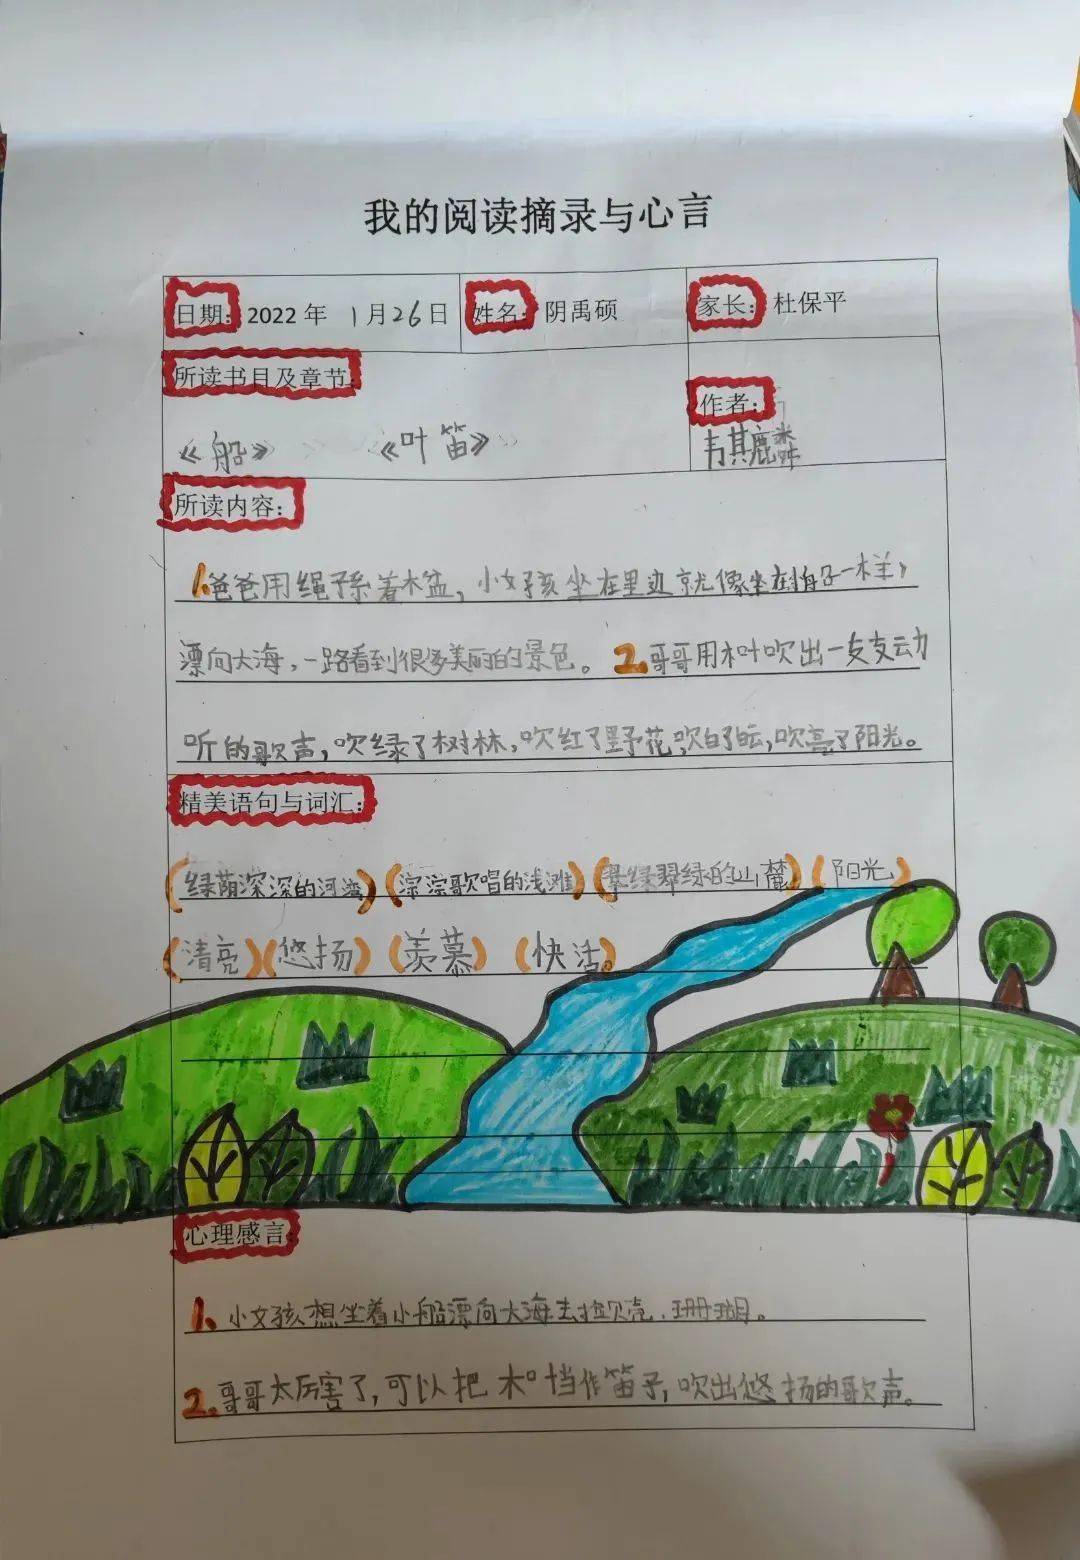 我的阅读摘录与心言
日期：2022年 1月26日 姓名：阴禹硕 家长：杜保平
所读书目及章节：
作者：
《船》 《叶笛》 韦其麟
所读内容：
1.爸爸用绳子系着木盆，小女孩坐在里边就像坐在船子一样，
漂向大海，一路看到很多美丽的景色。2.哥哥用木叶吹出一支支动
听的歌声，吹绿了树林，吹红了野花，吹白了云，吹亮了阳光。
精美语句与词汇：
（绿荫深深的河湾）（淙淙歌唱的浅滩）（翠绿翠绿的山麓）（阳光）
（清亮）（悠扬）（羡慕）（快活。）
心理感言：
1、小女孩想坐着小船漂向大海去捡贝壳、珊瑚。
2.哥哥太厉害了，可以把木叶当作笛子，吹出悠扬的歌声。